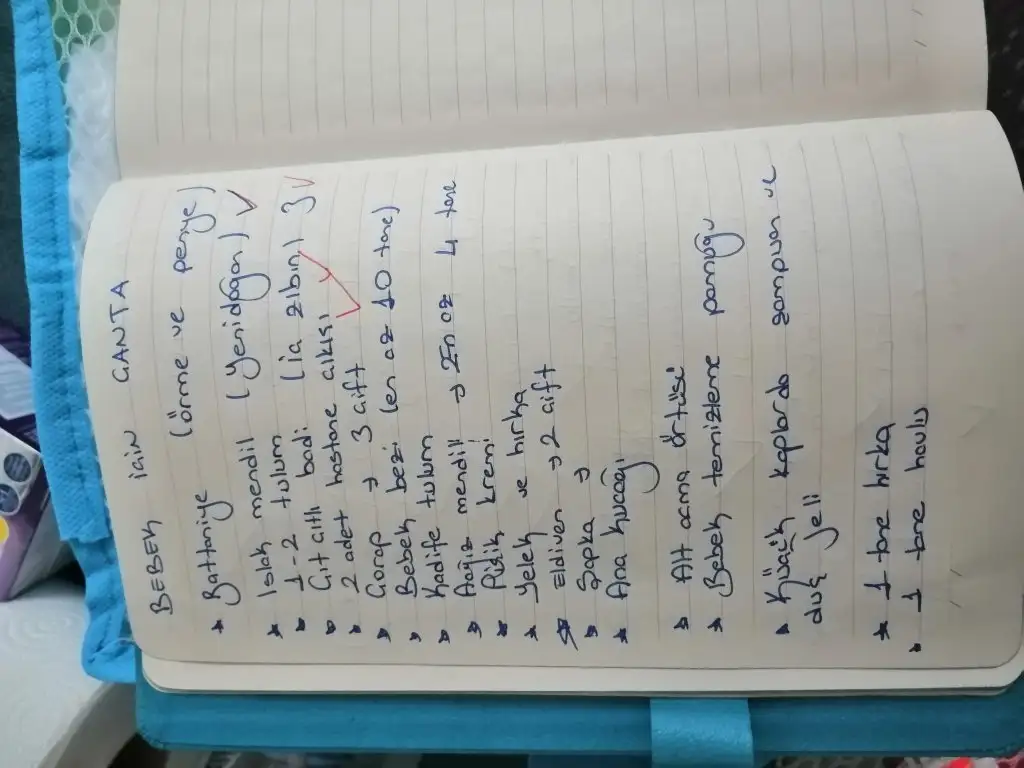 BEBEK İÇİN ÇANTA
Battaniye (örme ve penye)
Islak mendil (yenidoğan) ✓
1-2 tulum
Çıt çıtlı badi (ia zıbın) 3 ✓
2 adet hastane çıkışı
Çorap → 3 çift
Bebek bezi (en az 10 tane)
Kadife tulum
Ağız mendili → En az 4 tane
Pişik kremi
Yelek ve hırka
Eldiven → 2 çift
Şapka →
Ana kucağı
Alt açma örtüsü
Bebek temizleme pamuğu
Küçük kaplarda şampuan ve
duş jeli
1 tane hırka
1 tane havlu